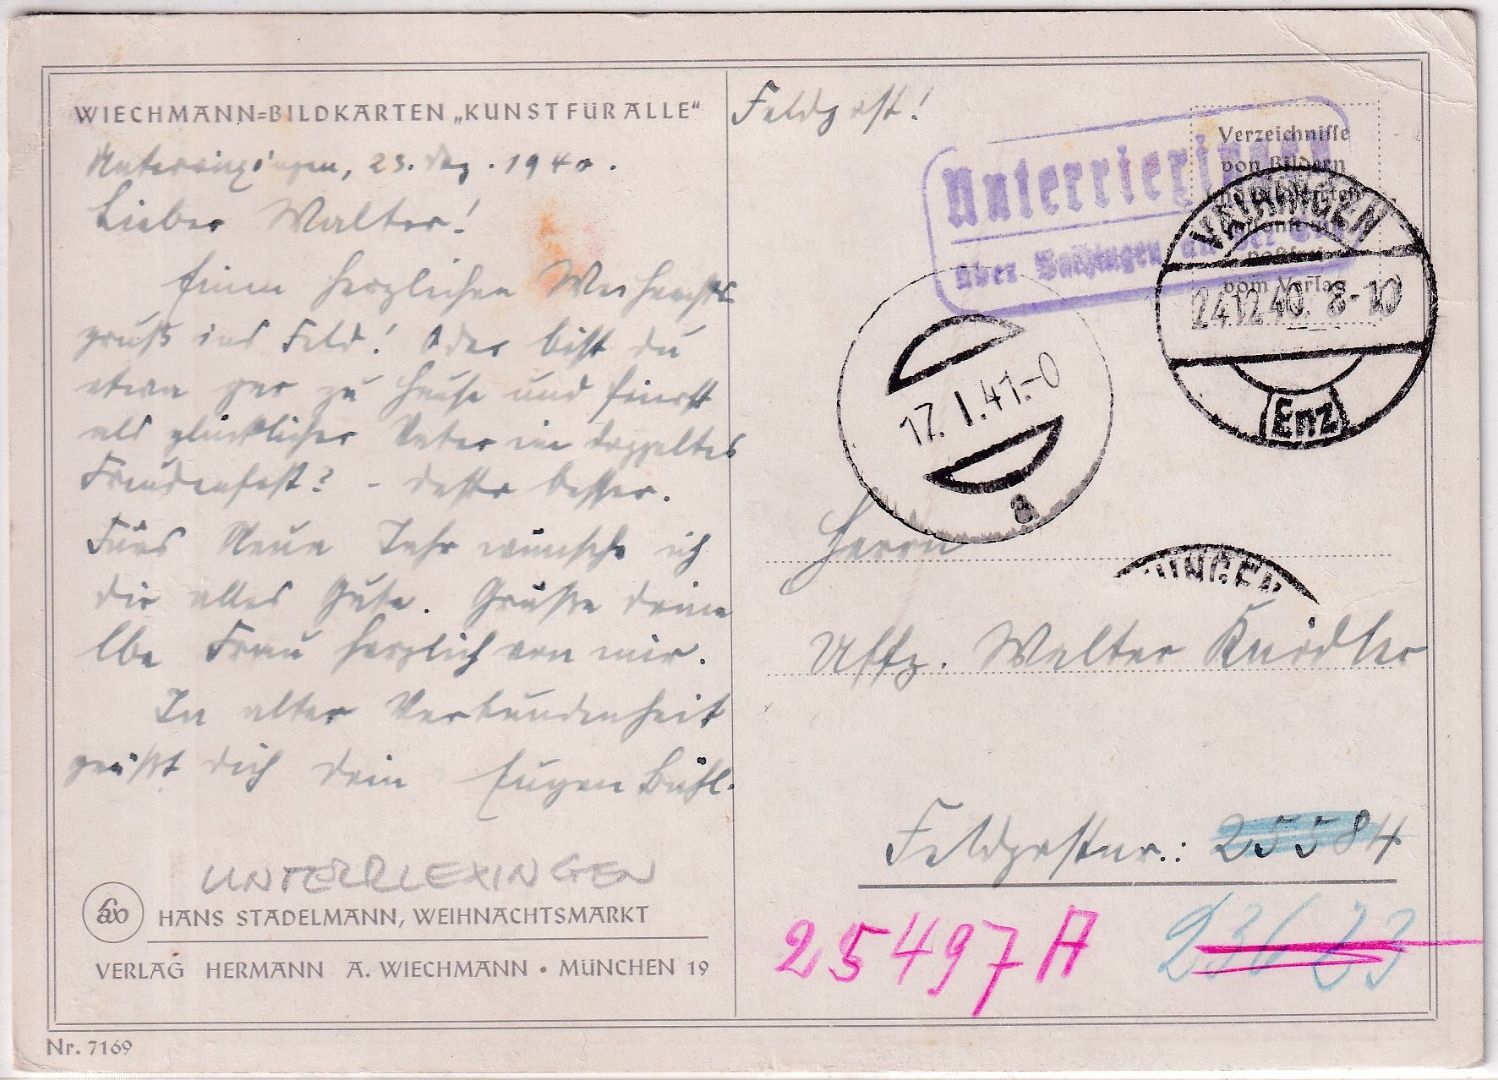 WIECHMANN=BILDKARTEN „KUNST FÜR ALLE“
Unterriexingen, 23. Dez. 1940.
Lieber Walter!
Einen herzlichen Weihnachts
gruß ins Feld! Oder bist du
etwa gar zu Hause und feierst
als glücklicher Vater ein doppeltes
Freudenfest? - desto besser.
Fürs Neue Jahr wünsche ich
dir alles Gute. Grüße deine
lbe Frau herzlich von mir.
In alter Verbundenheit
grüßt dich dein Eugen Bühl.
UNTERRIEXINGEN
HANS STADELMANN, WEIHNACHTSMARKT
VERLAG HERMANN A. WIECHMANN • MÜNCHEN 19
Nr. 7169
Feldpost!
Unterriexingen
über Vaihingen an der Enz
Verzeichnisse
von Bildern
vom Verlag
VAIHINGEN
24.12.40. 8-10
(Enz)
17. 1. 41.-0
a
Herrn
Uffz. Walter Knödler
Feldpostnr.: 25584
25497 A 23623